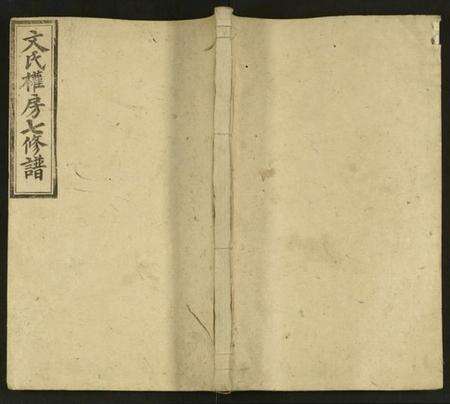 文氏權房七修譜